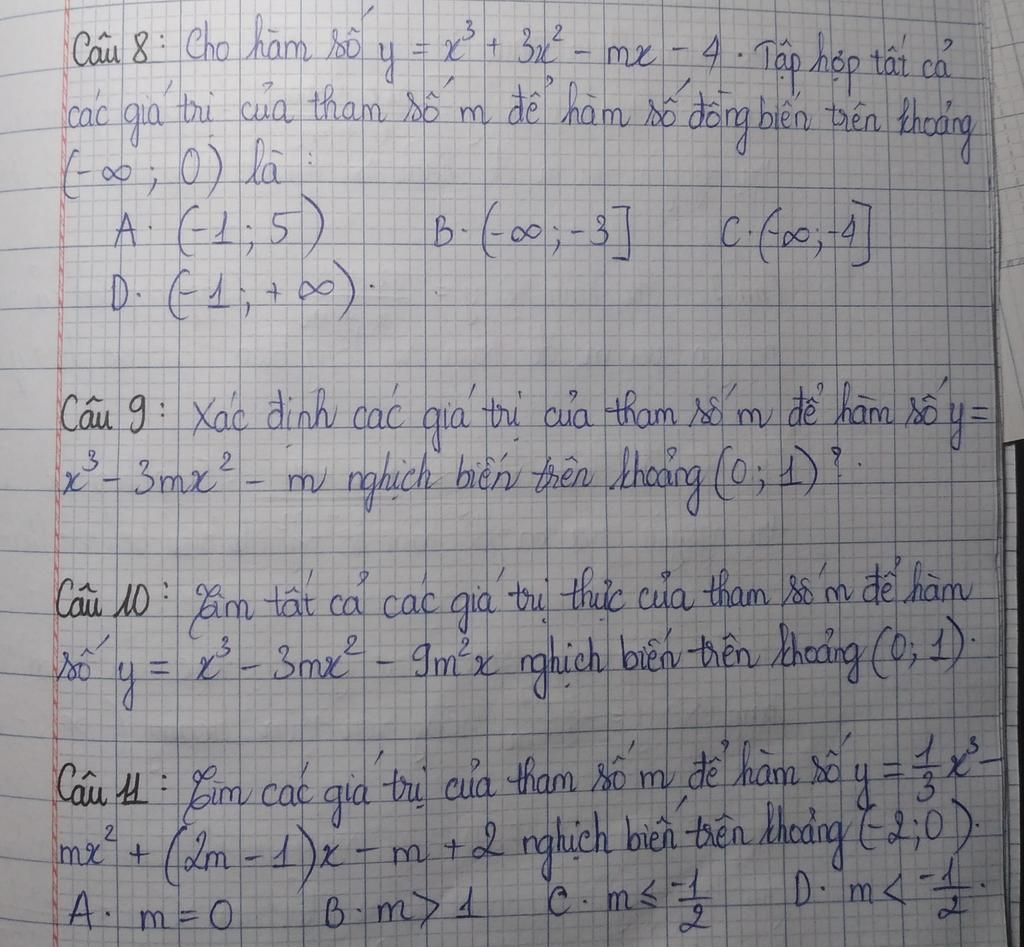 Câu 8: Cho hàm số y = x³ + 3x² - mx - 4. Tập hợp tất cả
các giá trị của tham số m để hàm số đồng biến trên khoảng
(-∞; 0) là:
A. (-1; 5) B. (-∞; -3] C. (-∞; -4]
D. (-1; +∞).
Câu 9: Xác định các giá trị của tham số m để hàm số y =
x³ - 3mx² - m nghịch biến trên khoảng (0; 1)?.
Câu 10: Tìm tất cả các giá trị thực của tham số m để hàm
số y = x³ - 3mx² - 9m²x nghịch biến trên khoảng (0; 1).
Câu 11: Tìm các giá trị của tham số m để hàm số y = 1/3 x³ -
mx² + (2m - 1)x - m + 2 nghịch biến trên khoảng (-2; 0).
A. m = 0 B. m > 1 C. m ≤ -1/2 D. m < -1/2.